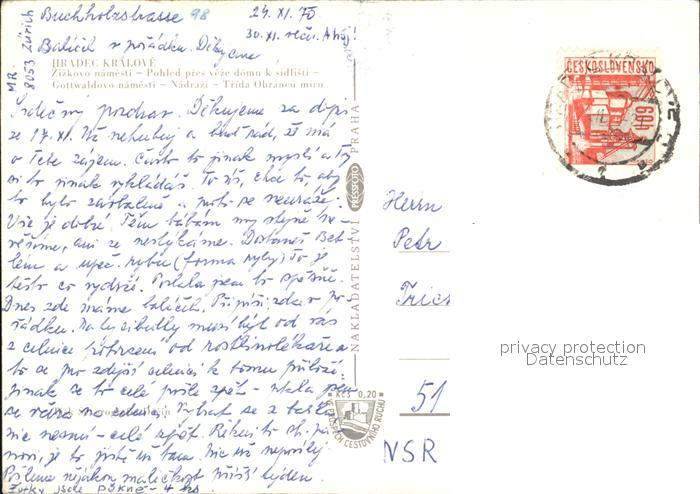 Buchholzstrasse 98 24. XI. 70
MR. 8053 Zürich
30. XI. večer. Ahoj!
Balíček v pořádku. Děkujeme
HRADEC KRÁLOVÉ
Žižkovo náměstí – Pohled přes věže dómu k sídlišti –
Gottwaldovo náměstí – Nádraží – Třída Obránců míru
Srdečný pozdrav. Děkujeme za dopis
ze 17. XI. Už nehubuj a buď rád, že má
o Tebe zájem. Často to jinak myslí a Ty
si to jinak vykládáš. To víš, chce to, aby
to bylo a proto se neurážej.
Vše je dobré. Těm bábám my stejně ne-
věříme, ani se nestýkáme. Dostaneš Bet-
lém a rybu (forma ryby) To je
těsto co vydrží. Poslala jsem to
Dnes zde máme balíček. Připiš: zda v po-
řádku. Na to cibulky musí být od vás
z celnice potvrzení od rostlinolékaře a
to se pro zdejší celnici k tomu přiloží.
jinak se to celé pošle zpět – ptala jsem
se na celnici. Vybrat se z balíku
nic nesmí – celé zpět. Řekni to
je to jistě už tam. Nic už neposílej
Pošleme nějakou maličkost příští týden.
Fotky jsou pěkné – 4 ks.
NAKLADATELSTVÍ PRESSFOTO PRAHA
ČESKOSLOVENSKO
60h
Herrn
Petr
51
NSR
Kčs 0,20
VE PROSPĚCH CESTOVNÍHO RUCHU
privacy protection
Datenschutz